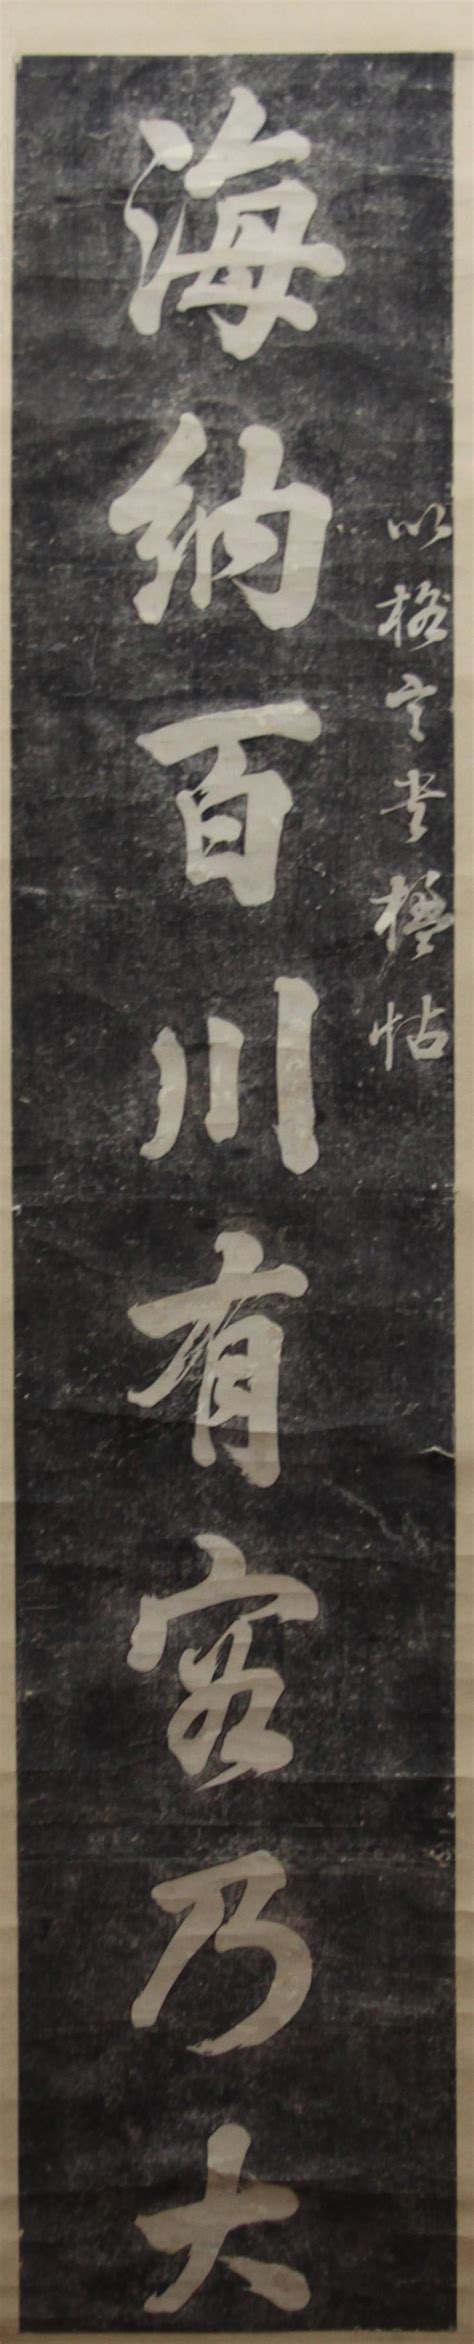 以格言书楹帖
海纳百川有容乃大